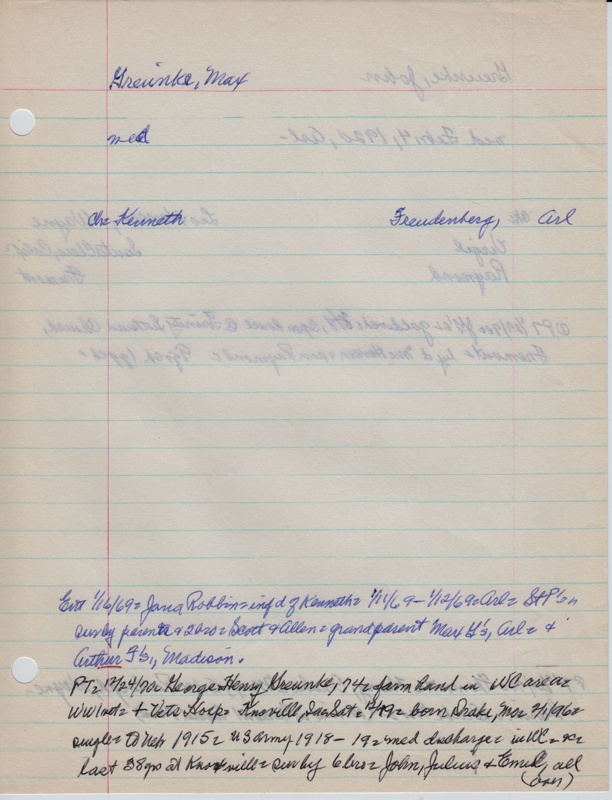 Greunke, Max
med
Ch= Kenneth Freudenberg, Arl
Evt 1/16/69= Jana Robbin= inf d of Kenneth= 1/11/69 - 1/12/69= Arl= St P's=
surv by parents & 2 bro= Scott & Allen= grandparent Max G's, Arl= &
Arthur F's, Madison.
PT= 12/24/70= George Henry Greunke, 74= farm hand in WC area=
WW I vet= + Vets Hosp= Knoxville, Ia= Sat= 12/19= born Drake, Mo= 2/1/96=
single= to Neb 1915= US army 1918-19= med discharge= in WC=
last 38 yrs at Knoxville= surv by 6 bro= John, Julius & Emil, all
(over)